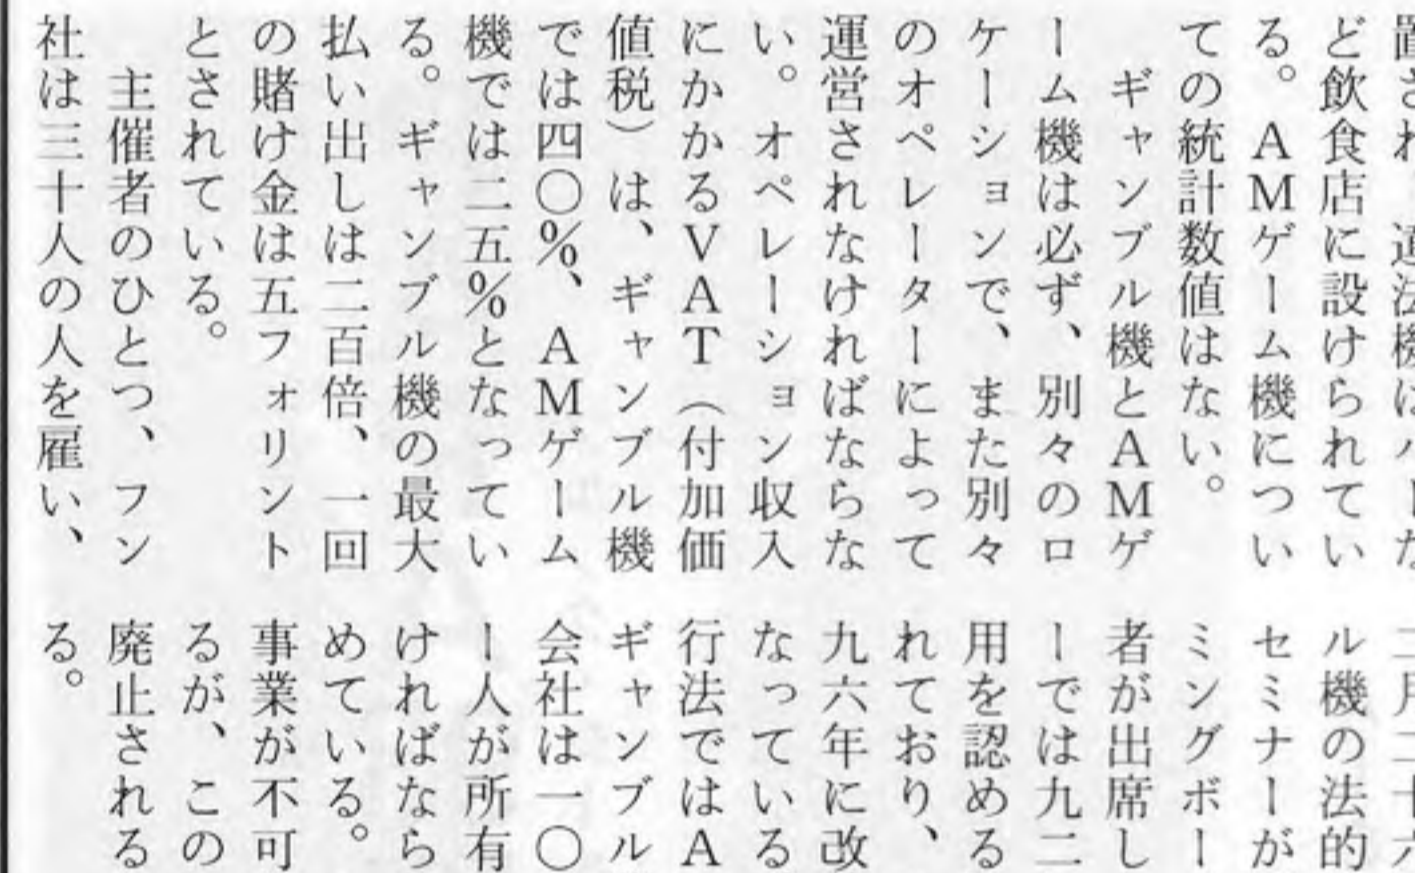 ど飲食店に設けられてい
る。AMゲーム機につい
ての統計数値はない。
ギャンブル機とAMゲ
ーム機は必ず、別々のロ
ケーションで、また別々
のオペレーターによって
運営されなければならな
い。オペレーション収入
にかかるVAT（付加価
値税）は、ギャンブル機
では四〇%、AMゲーム
機では二五%となってい
る。ギャンブル機の最大
払い出しは二百倍、一回
の賭け金は五フォリント
とされている。
主催者のひとつ、フン
社は三十人の人を雇い、
ル機の法的
セミナーが
ミングボー
者が出席し
ーでは九二
用を認める
れており、
九六年に改
なっている
行法ではA
ギャンブル
会社は一〇
ー人が所有
ければなら
めている。
事業が不可
るが、この
廃止される
る。